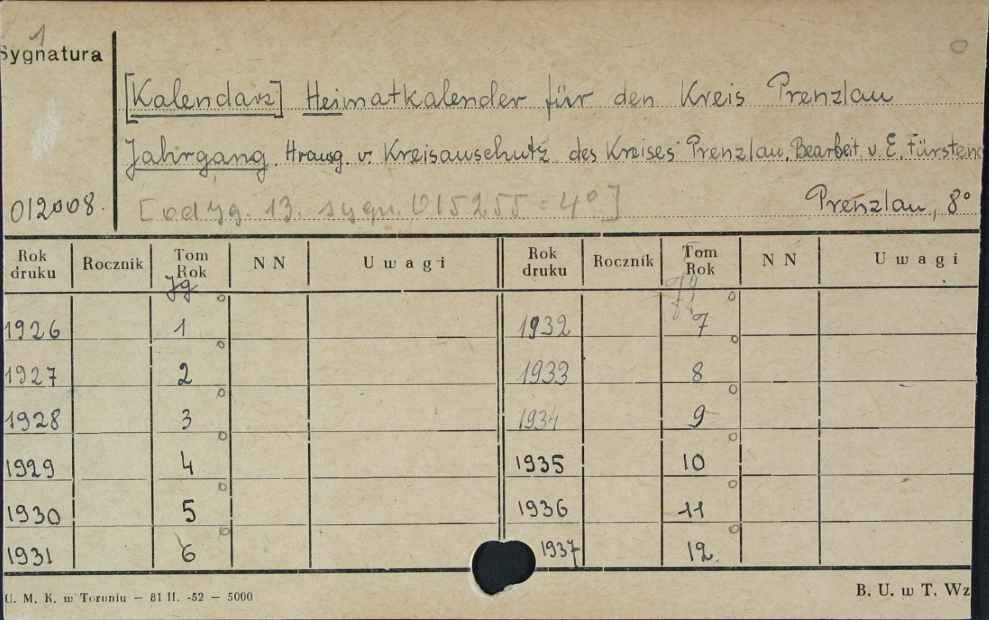 1
Sygnatura
[Kalendarz] Heimatkalender für den Kreis Prenzlau
Jahrgang. Hrausg. v. Kreisauschutz des Kreises Prenzlau. Bearbeit. v. E. Fürsten
012008. Prenzlau, 8°
[od jg. 13. sygn. 015255 = 4°]
Rok druku Rocznik Tom Rok NN Uwagi Rok druku Rocznik Tom Rok NN Uwagi
Jg
1926 1 1932 7
1927 2 1933 8
1928 3 1934 9
1929 4 1935 10
1930 5 1936 11
1931 6 1937 12.
U. M. K. w Toruniu — 81 II. -52 — 5000 B. U. w T. Wz